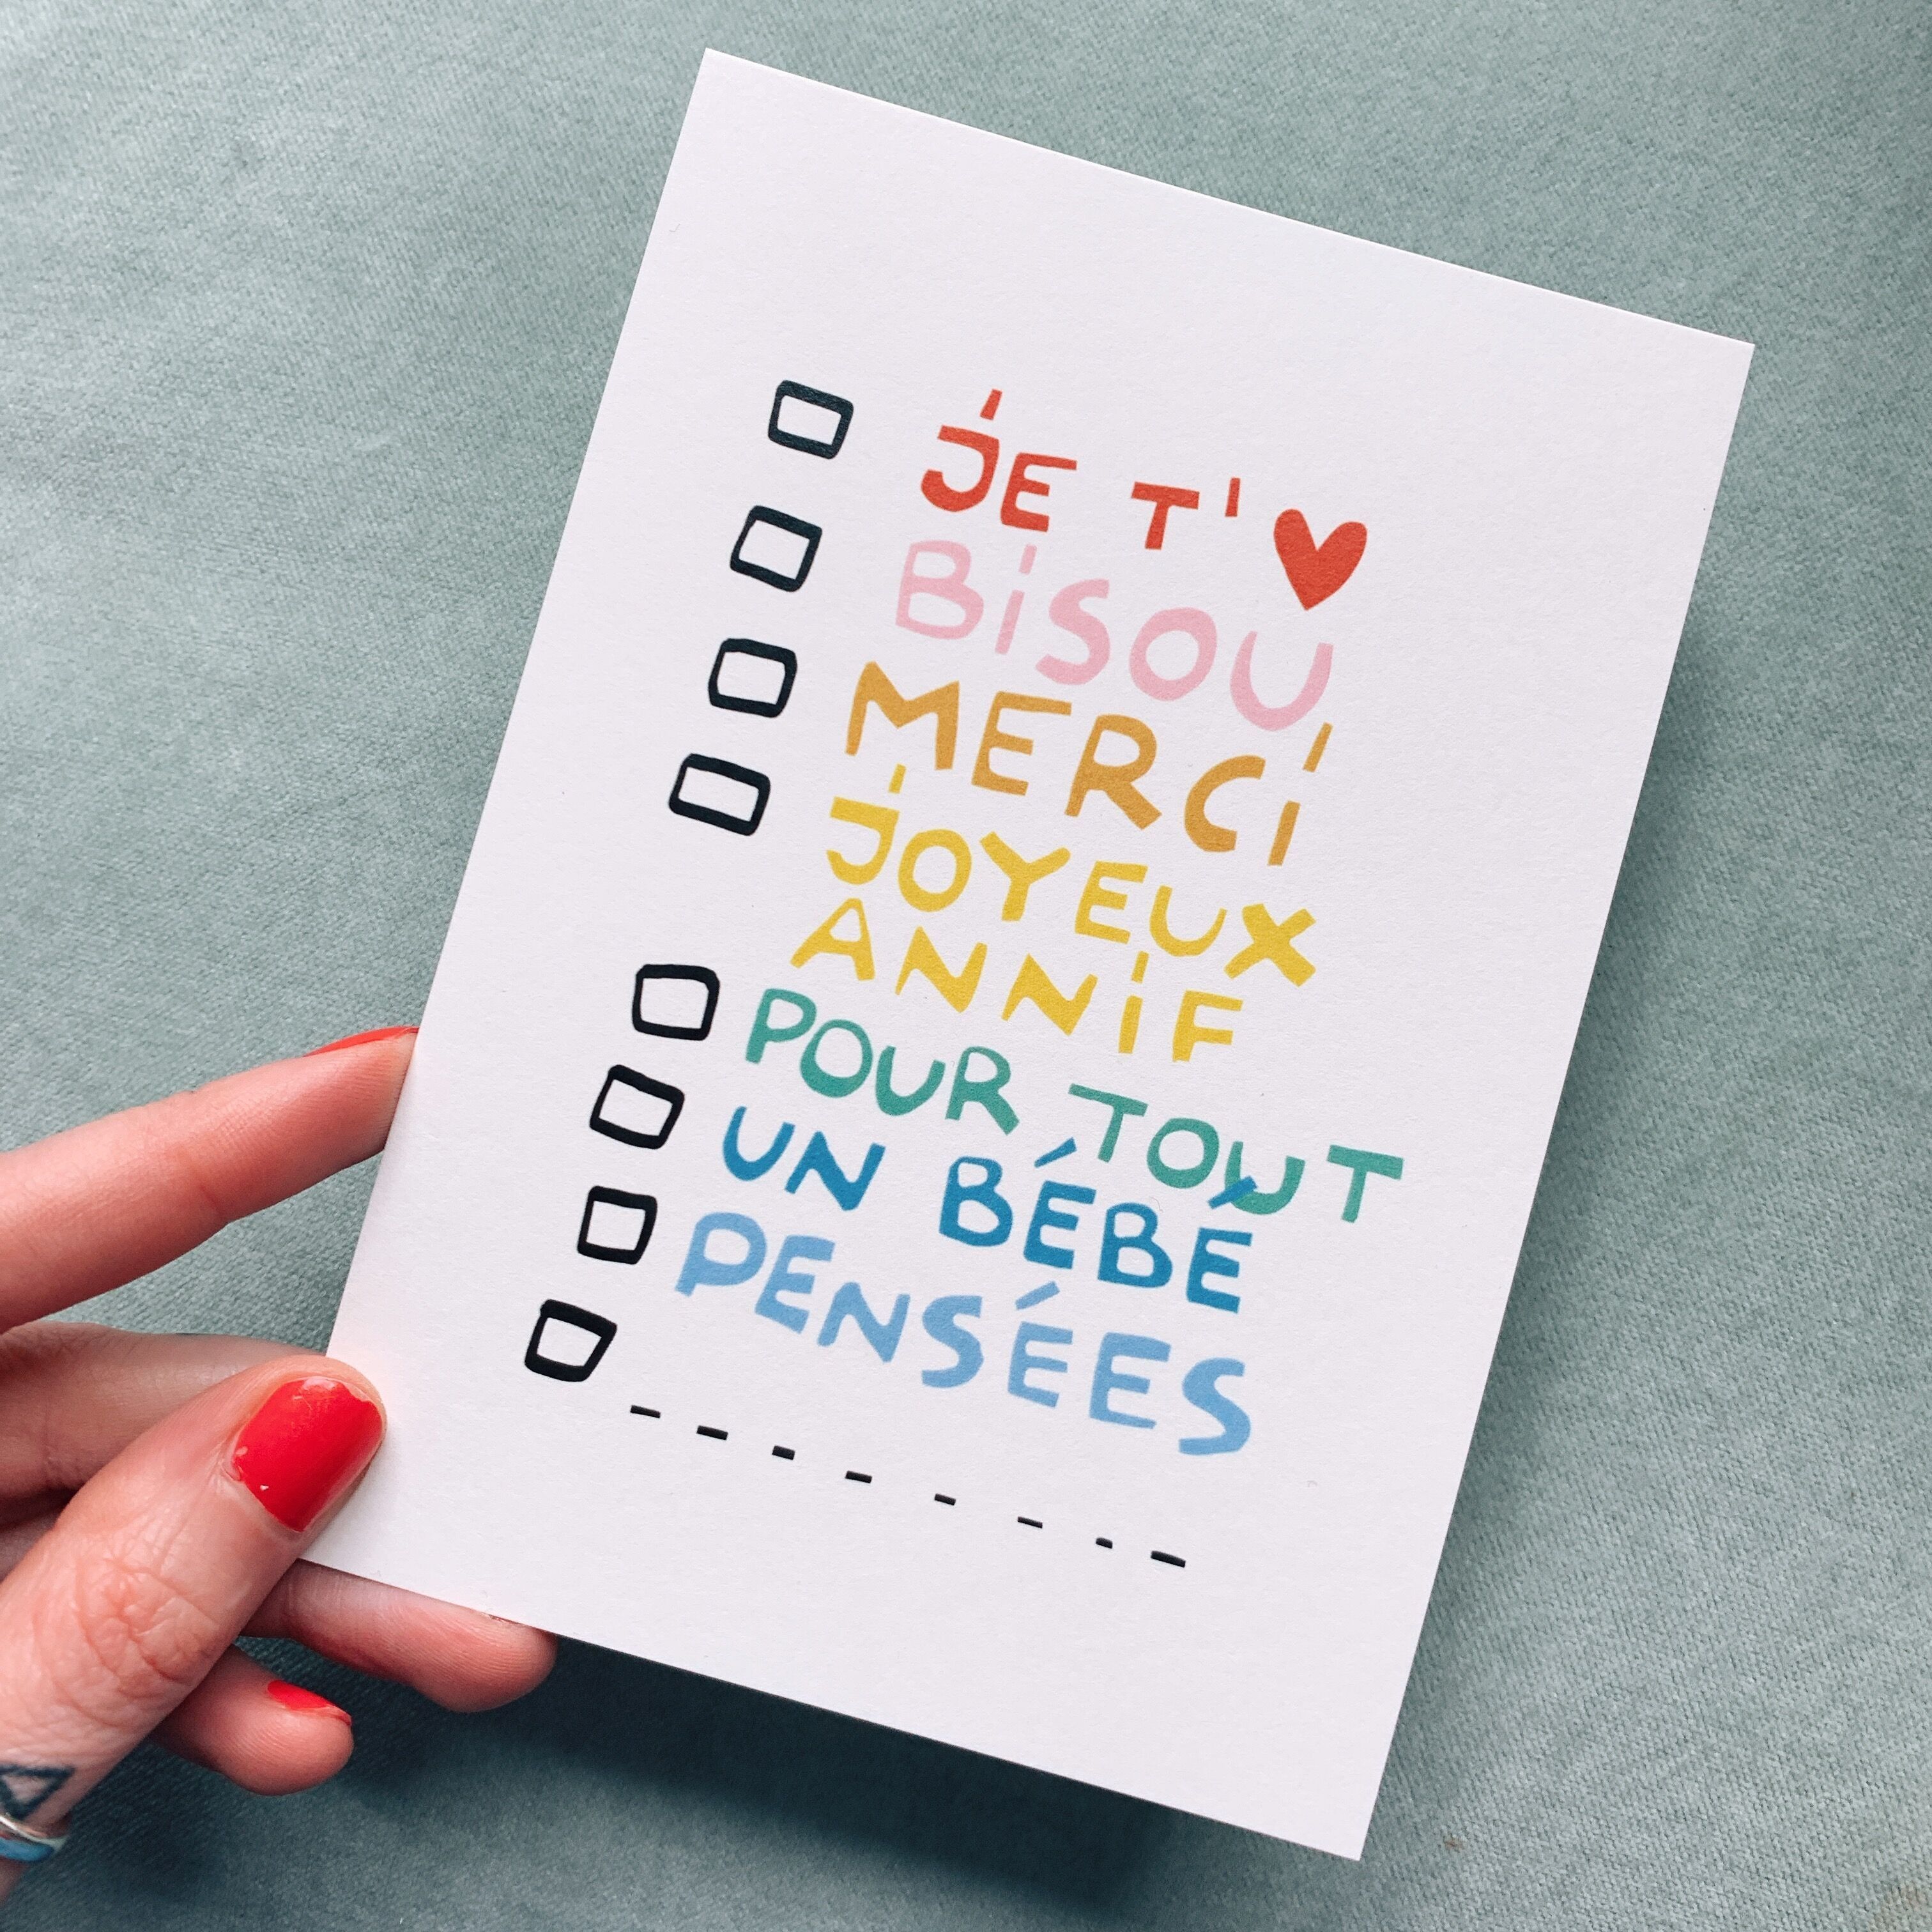 JE T'❤
BISOU
MERCI
JOYEUX
ANNIF
POUR TOUT
UN BÉBÉ
PENSÉES